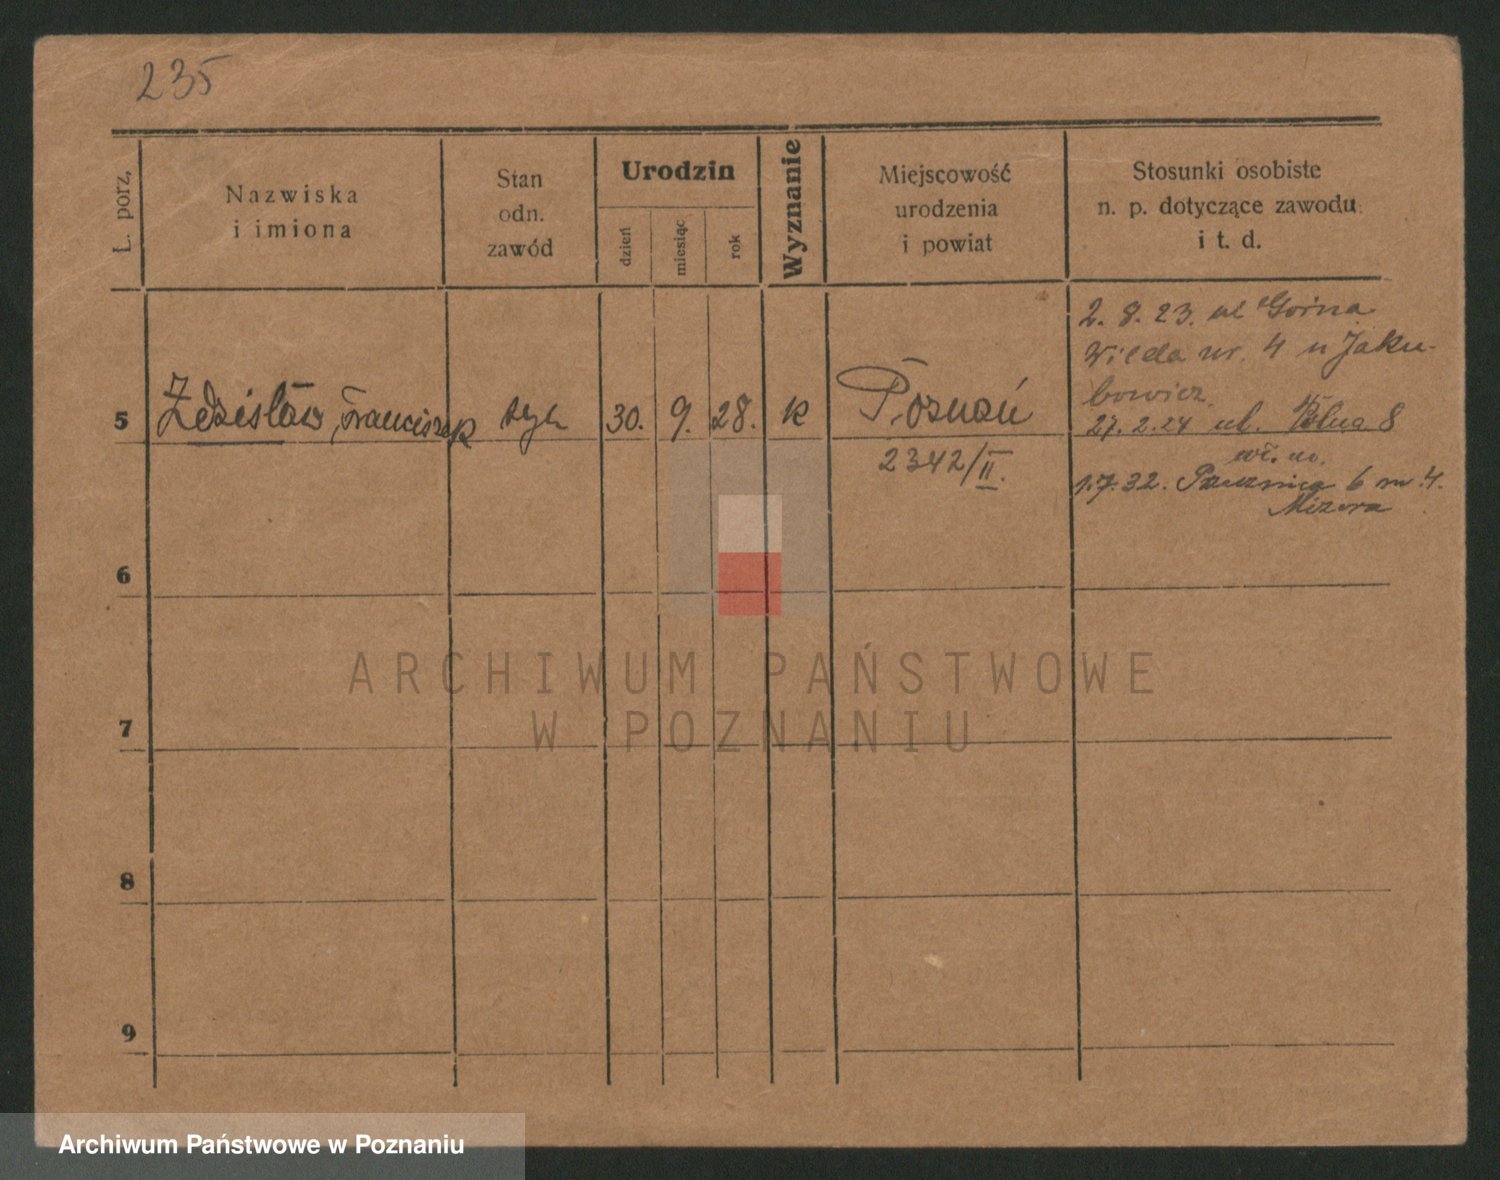 235
L. porz.
Nazwiska
i imiona
Stan
odn.
zawód
Urodzin
dzień
miesiąc
rok
Wyznanie
Miejscowość
urodzenia
i powiat
Stosunki osobiste
n. p. dotyczące zawodu
i t. d.
5
Zdzisław, Franciszek
syn
30.
9.
28.
k
Poznań
2342/II.
2. 8. 23. ul Górna
Wilda nr. 4 u Jaku-
bowicz.
27. 2. 24 ul. Polna 8
1.7.32. 6 m. 4.
Mizera
6
7
8
9
ARCHIWUM PAŃSTWOWE
W POZNANIU
Archiwum Państwowe w Poznaniu